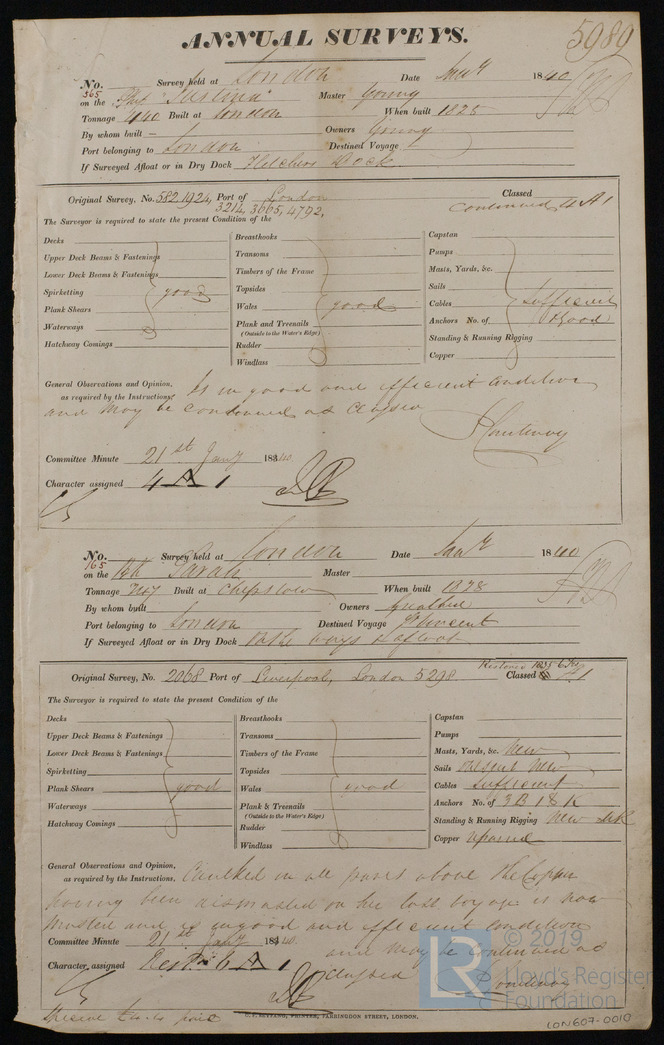 5989
ANNUAL SURVEYS.
No. 365 Survey held at London Date Jany 1840
on the Ship "Justina" Master Young
Tonnage 440 Built at London When built 1825
By whom built — Owners Young
Port belonging to London Destined Voyage
If Surveyed Afloat or in Dry Dock Fletchers Dock
Original Survey, No. 582, 1924, Port of London Classed
3214, 3665, 4792, Continued 4 A 1
The Surveyor is required to state the present Condition of the
Decks
Upper Deck Beams & Fastenings
Lower Deck Beams & Fastenings
Spirketting good
Plank Shears
Waterways
Hatchway Comings
Breasthooks
Transoms
Timbers of the Frame
Topsides
Wales good
Plank and Treenails
(Outside to the Water's Edge)
Rudder
Windlass
Capstan
Pumps
Masts, Yards, &c.
Sails
Cables sufficient
Anchors No. of & Good
Standing & Running Rigging
Copper
General Observations and Opinion, Is in good and efficient condition
as required by the Instructions.
and may be continued as classed
Committee Minute 21st Jany 1840
Character assigned 4 A 1
No. 165 Survey held at London Date Jany 1840
on the Bk Sarah Master
Tonnage Built at Chepstow When built 1828
By whom built Owners
Port belonging to London Destined Voyage St Vincent
If Surveyed Afloat or in Dry Dock & afloat
Restored 1835 6 Yrs
Original Survey, No. 2068 Port of Liverpool, London 5298 Classed A 1
The Surveyor is required to state the present Condition of the
Decks
Upper Deck Beams & Fastenings
Lower Deck Beams & Fastenings
Spirketting
Plank Shears good
Waterways
Hatchway Comings
Breasthooks
Transoms
Timbers of the Frame
Topsides
Wales good
Plank & Treenails
(Outside to the Water's Edge)
Rudder
Windlass
Capstan
Pumps
Masts, Yards, &c. New
Sails present New
Cables sufficient
Anchors No. of 3 B 1 S 1 K
Standing & Running Rigging New
Copper repaired
General Observations and Opinion, Caulked in all parts above the Copper
as required by the Instructions.
having been dismasted on her last voyage is now
masted and is in good and efficient condition
Committee Minute 21st Jany 1840 and may be continued as
Character assigned Rest. 6 A 1 classed
PRINTER, FARRINGDON STREET, LONDON.
LR © 2019
Lloyd's Register
Foundation
LON607-0010